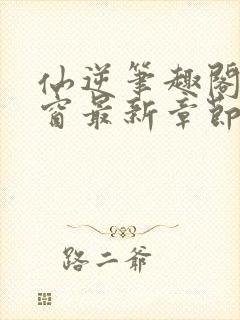 仙逆笔趣阁
窗最新章节
路二爷